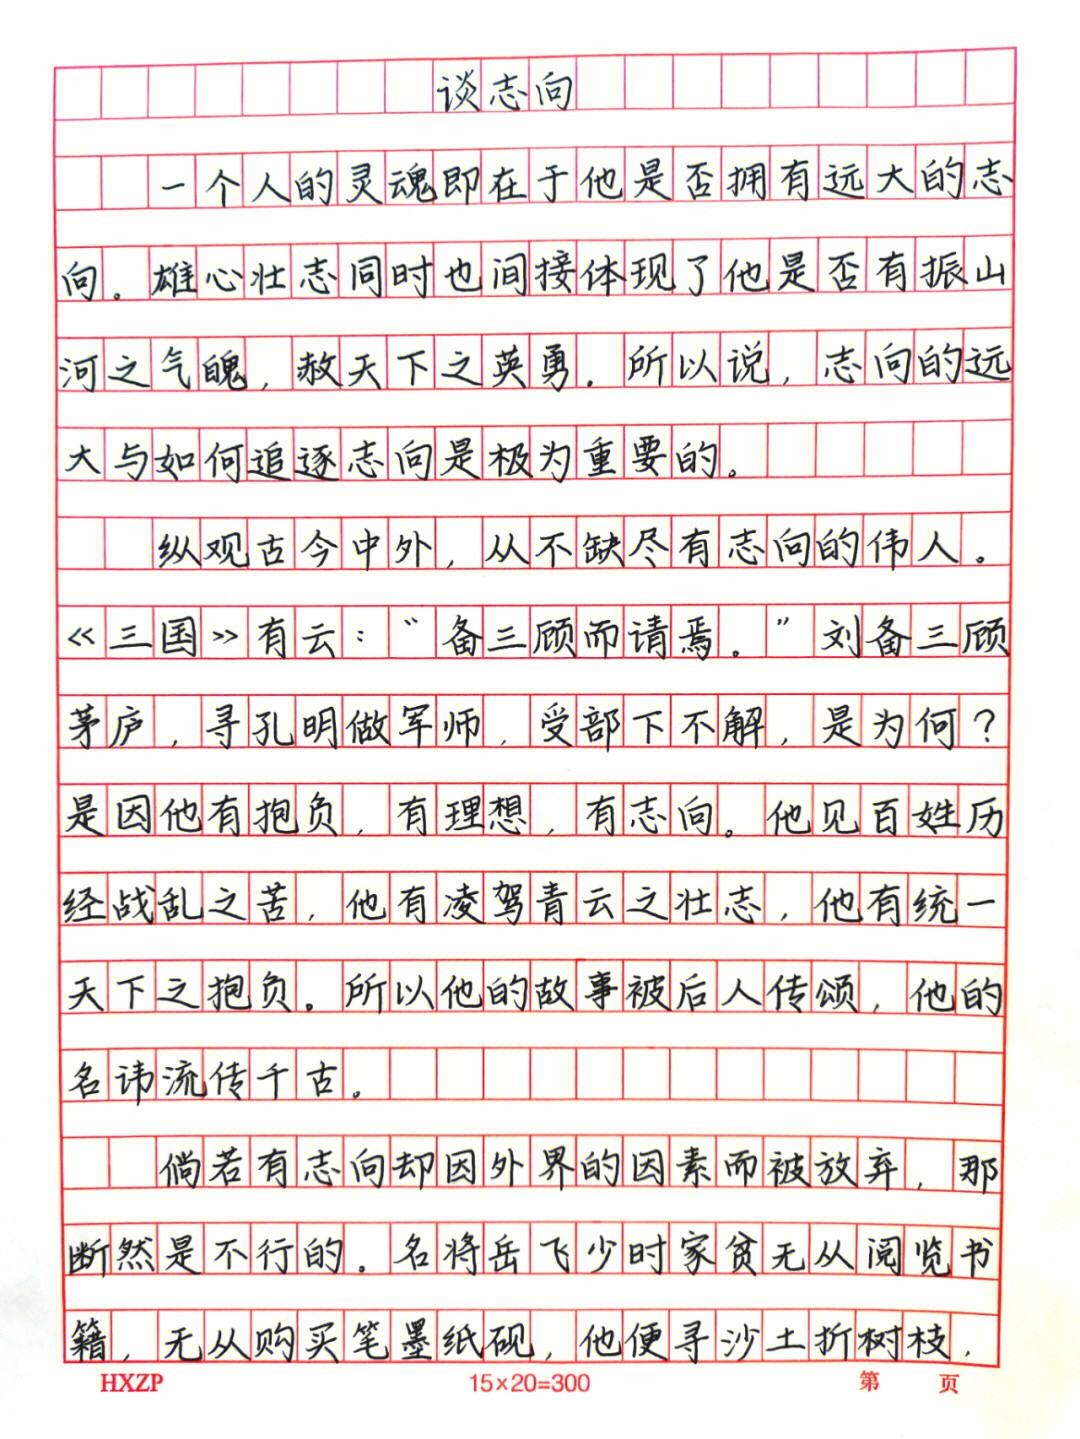 谈志向
一个人的灵魂即在于他是否拥有远大的志
向。雄心壮志同时也间接体现了他是否有振山
河之气魄，赦天下之英勇。所以说，志向的远
大与如何追逐志向是极为重要的。
纵观古今中外，从不缺尽有志向的伟人。
《三国》有云：“备三顾而请焉。”刘备三顾
茅庐，寻孔明做军师，受部下不解，是为何？
是因他有抱负，有理想，有志向。他见百姓历
经战乱之苦，他有凌驾青云之壮志，他有统一
天下之抱负。所以他的故事被后人传颂，他的
名讳流传千古。
倘若有志向却因外界的因素而被放弃，那
断然是不行的。名将岳飞少时家贫无从阅览书
籍，无从购买笔墨纸砚，他便寻沙土折树枝，
HXZP 15×20=300 第 页